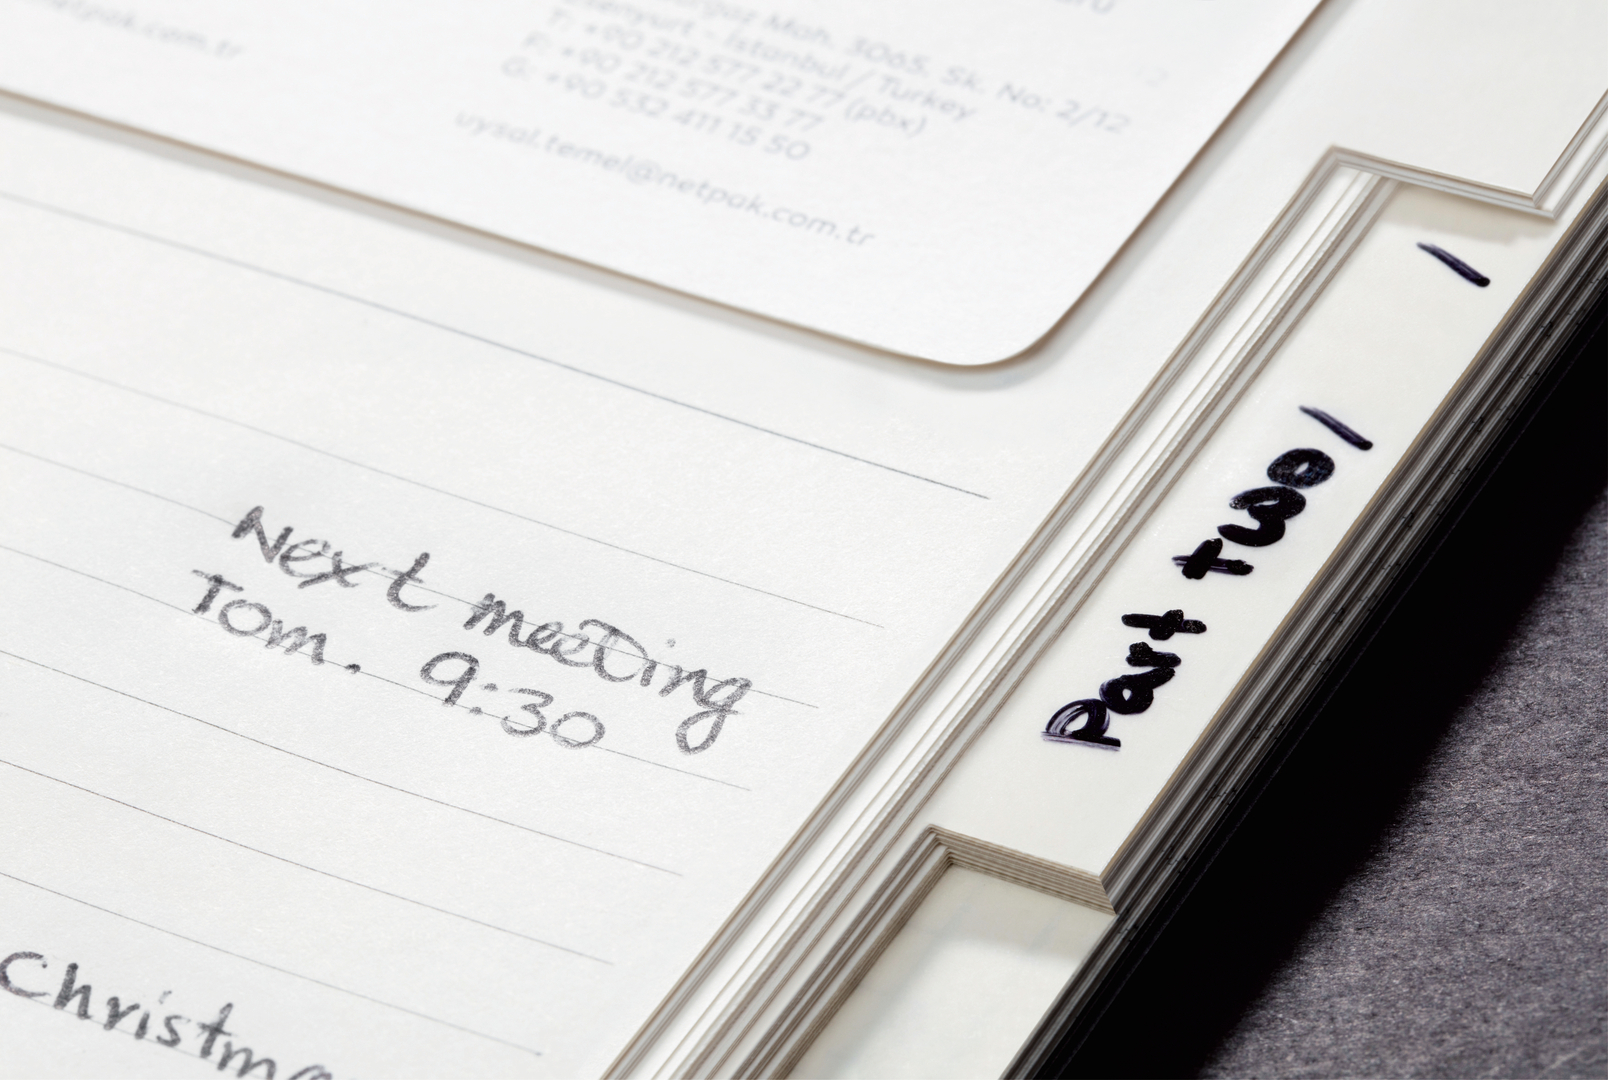 netpak.com.tr
Moh. 3065. Sk. No: 2/12
Esenyurt - İstanbul / Turkey
T: +90 212 577 22 77 (pbx)
F: +90 212 577 33 77
G: +90 532 411 15 50
uysal.temel@netpak.com.tr
Next meeting
Tom. 9:30
Christma
part +30/ /